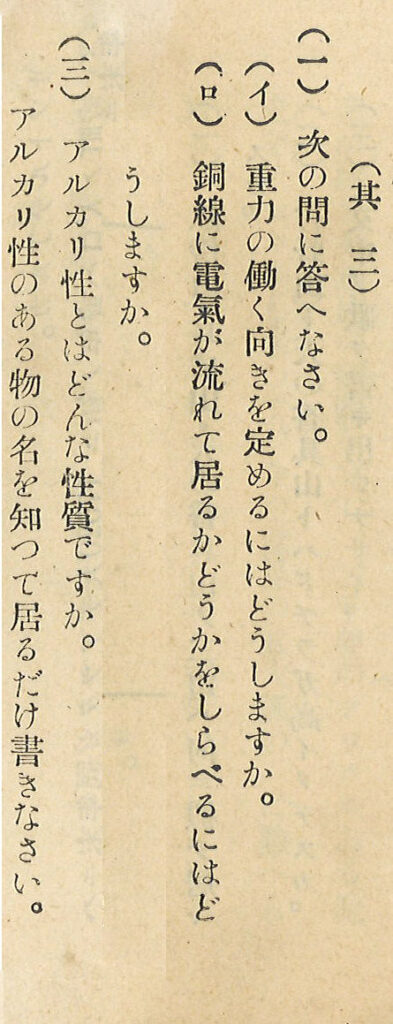 (其 三)
(一) 次の問に答へなさい。
(イ) 重力の働く向きを定めるにはどうしますか。
(ロ) 銅線に電氣が流れて居るかどうかをしらべるにはど
うしますか。
(三) アルカリ性とはどんな性質ですか。
アルカリ性のある物の名を知つて居るだけ書きなさい。